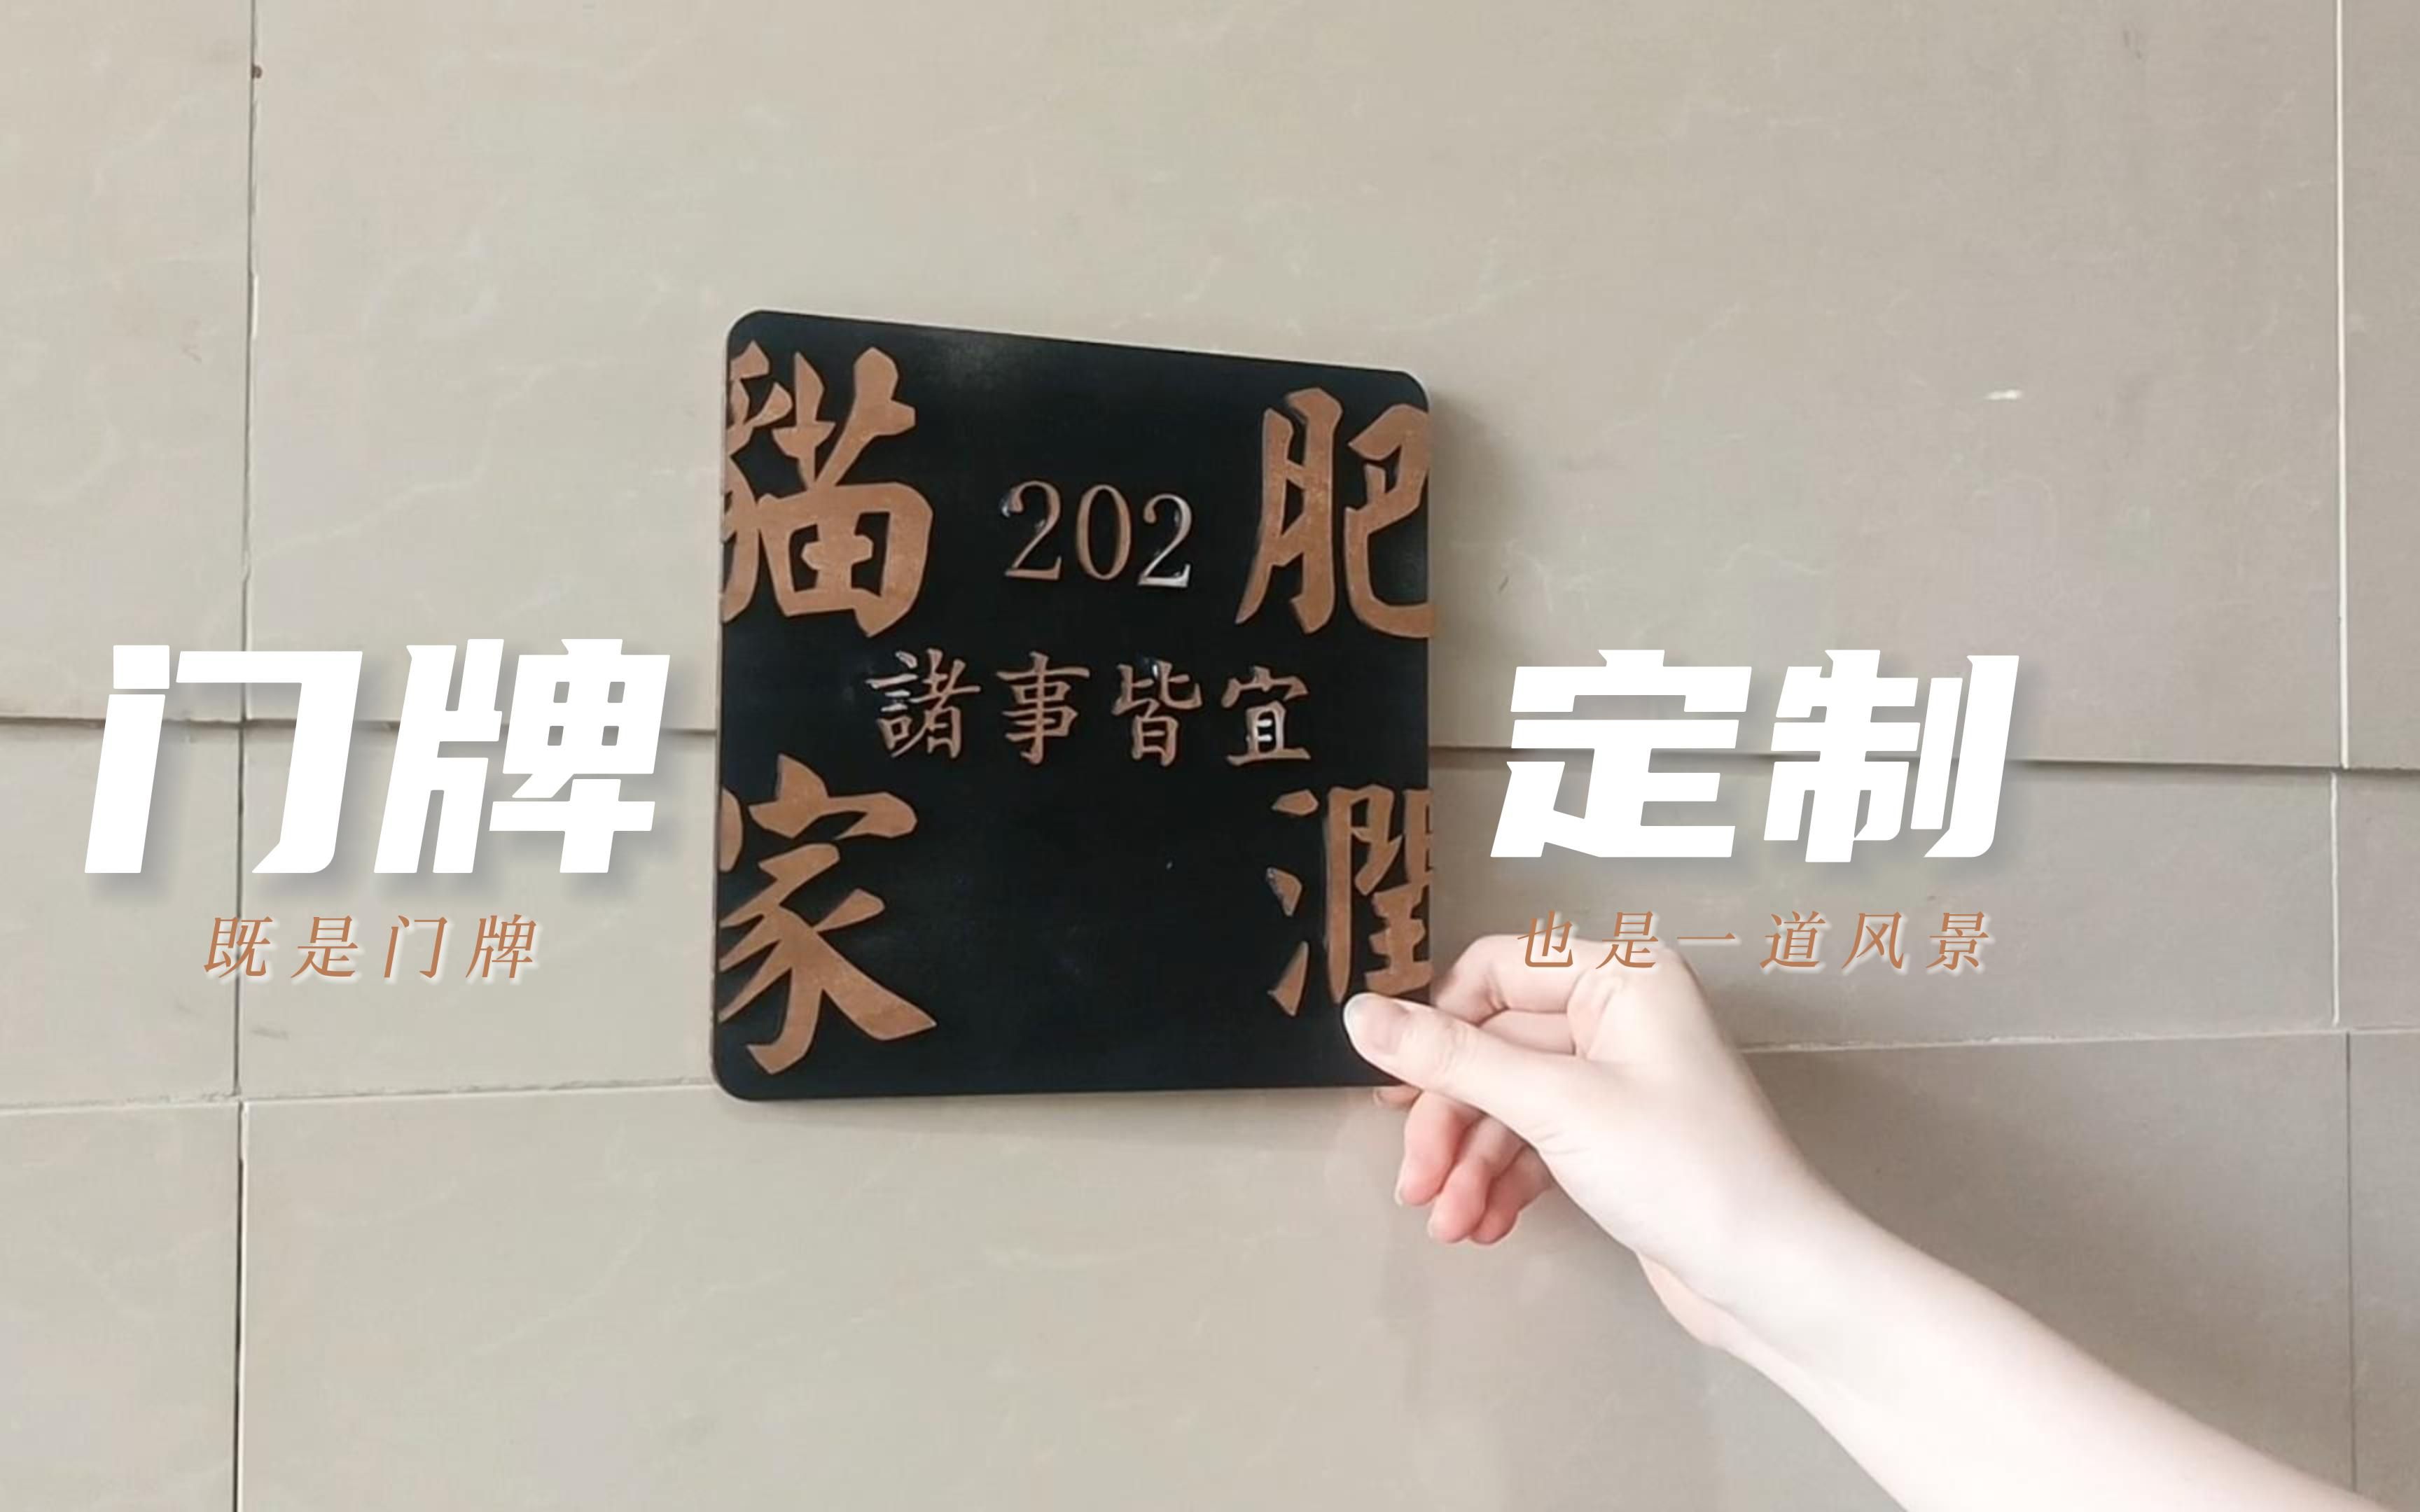 貓 肥
202
諸事皆宜
家 潤
门牌 定制
既是门牌 也是一道风景